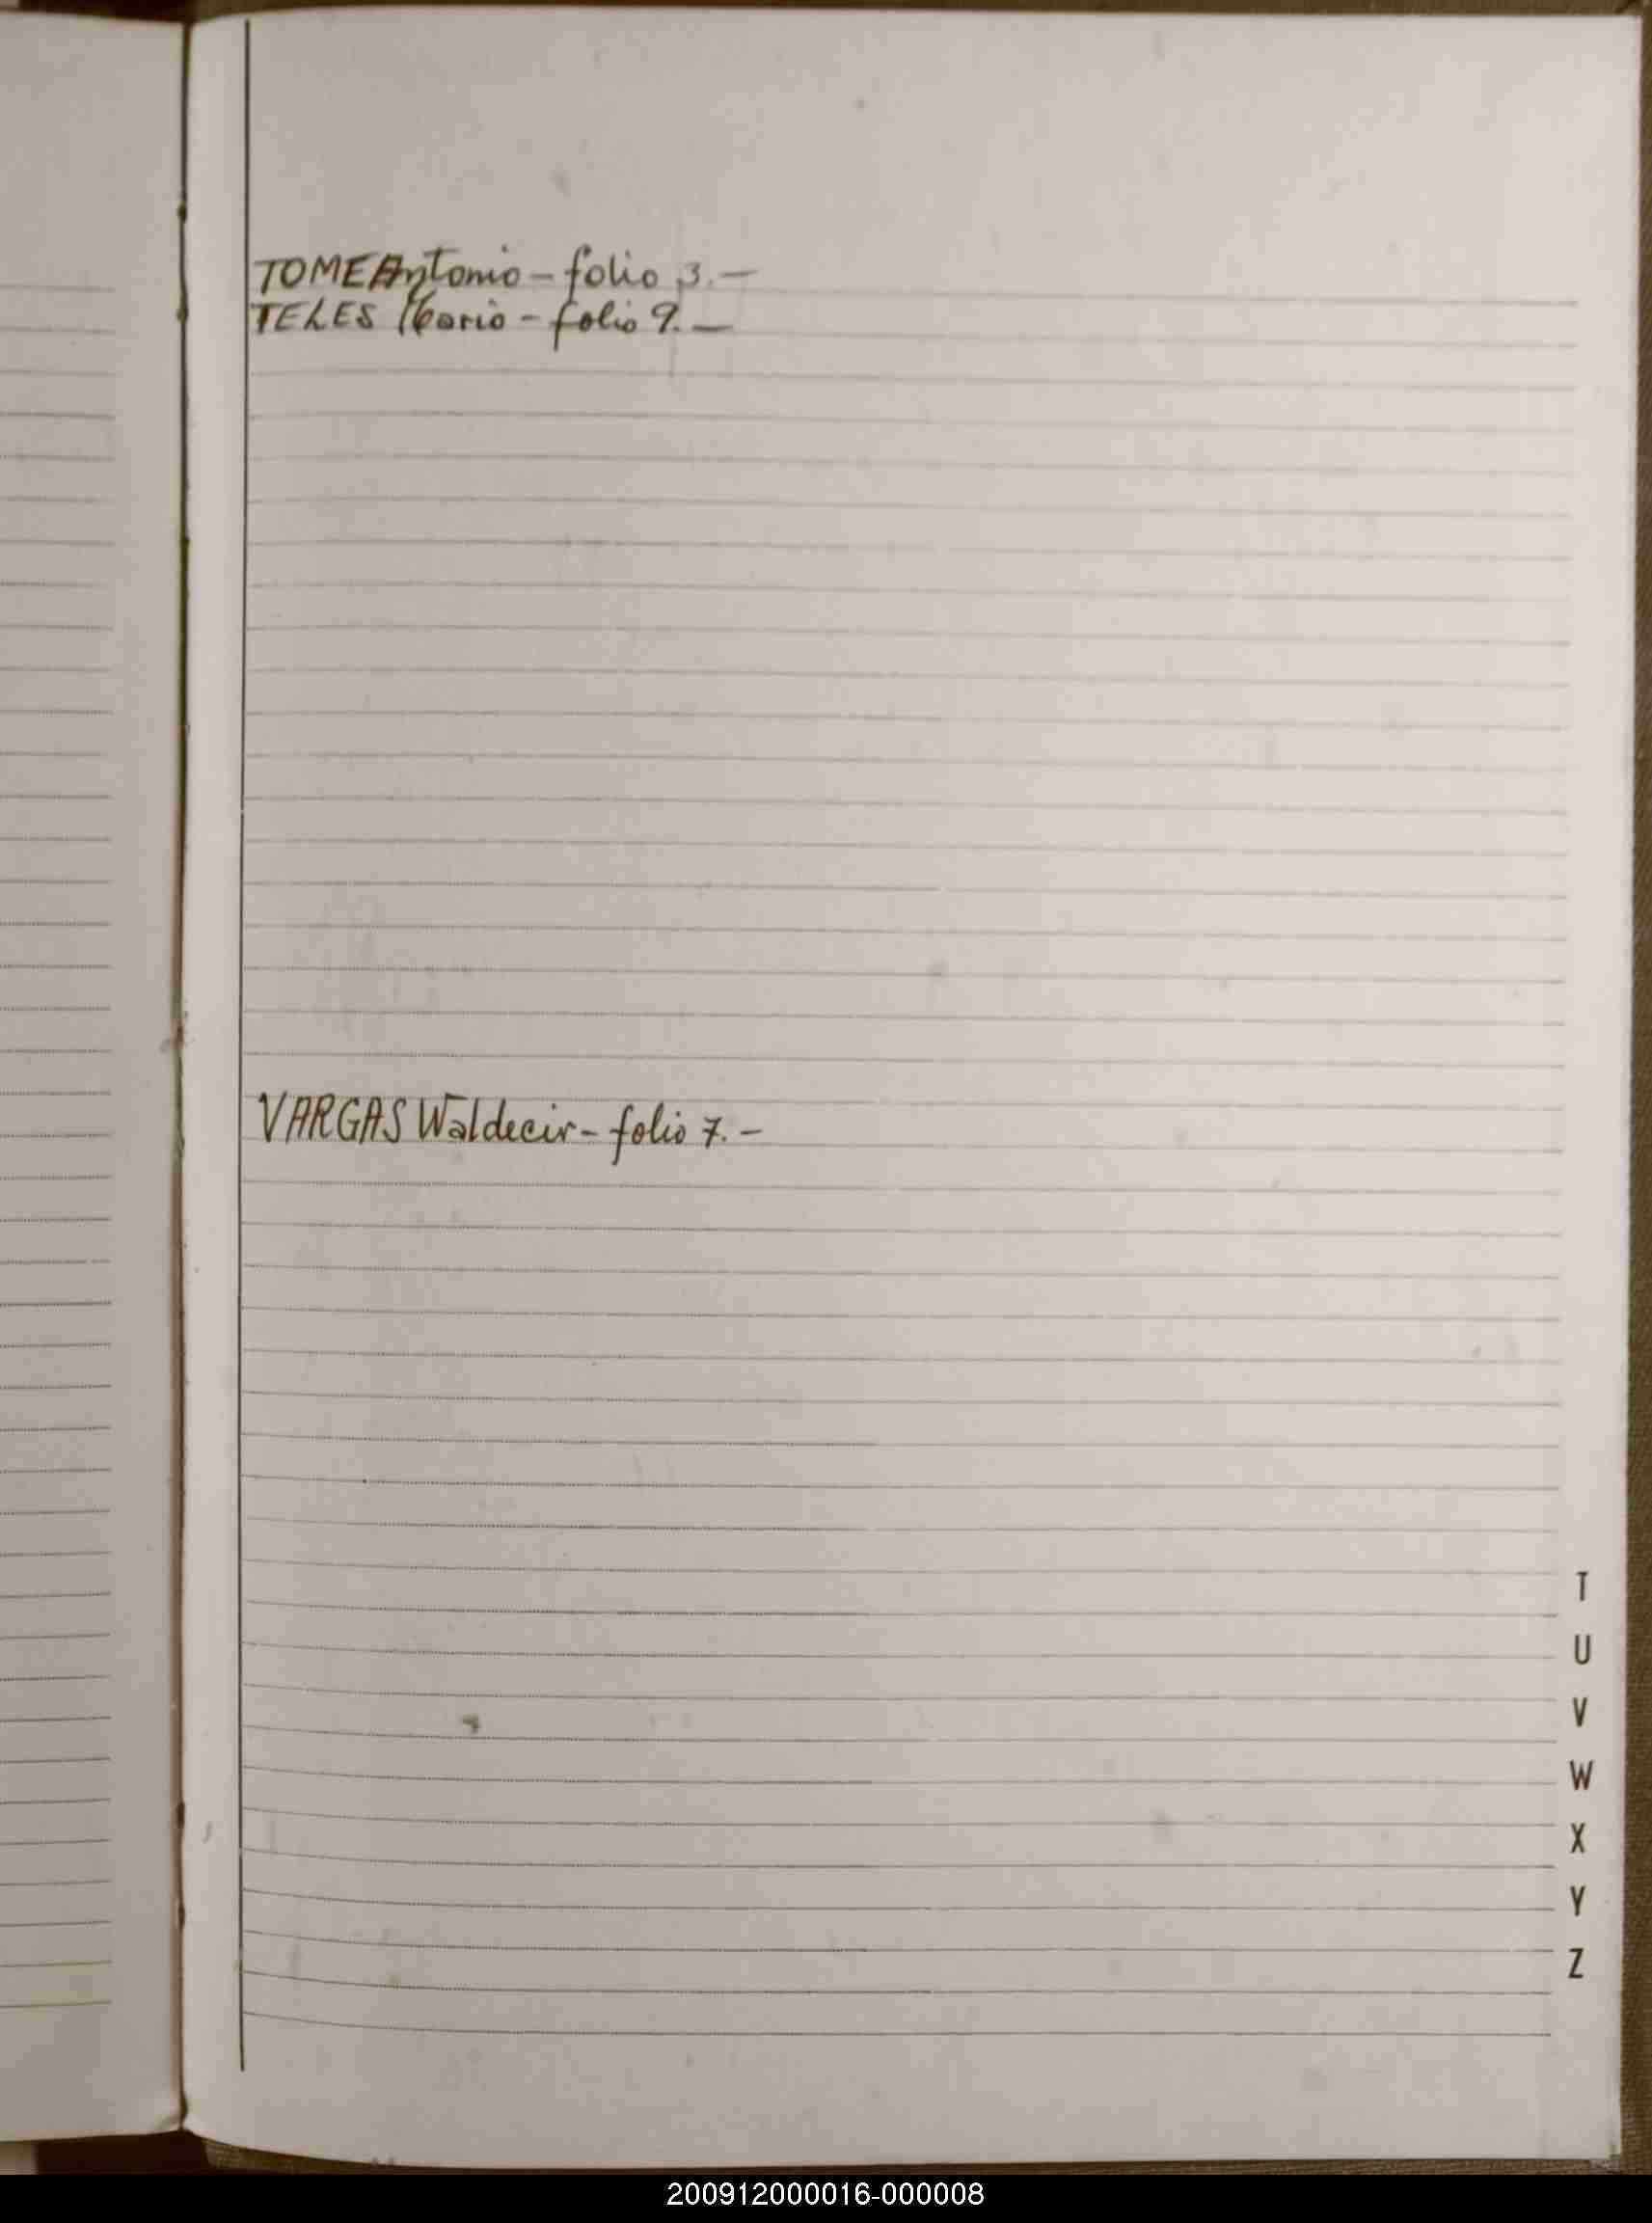 TOME Antonio - folio 3. -
TELES Mario - folio 9. -
VARGAS Waldecir - folio 7. -
T
U
V
W
X
Y
Z
200912000016-000008